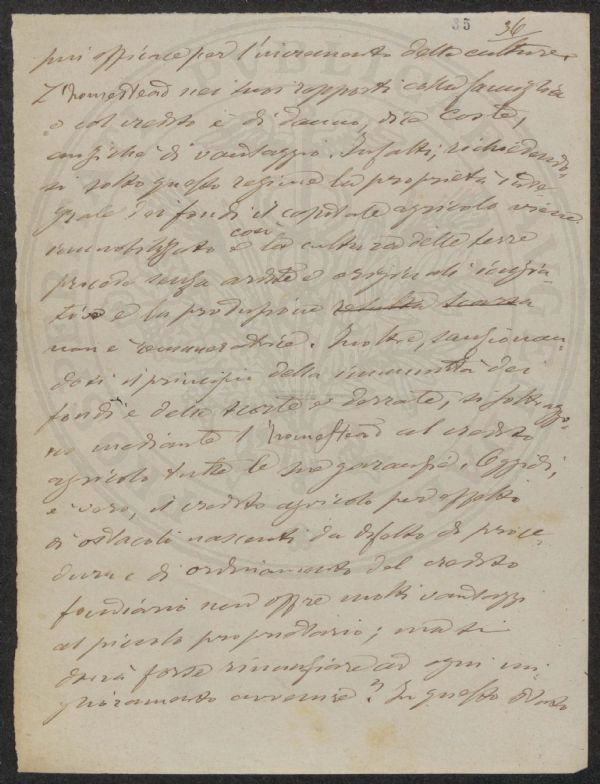 35 36
più efficace per l'incremento delle culture.
L'homestead nei suoi rapporti colla famiglia
e col credito è di danno, dice Corte,
anziché di vantaggio. Infatti, richiedendo-
si sotto questo regime la proprietà inte-
grale dei fondi il capitale agricolo viene
immobilizzato e con la cultura delle terre
procede senza ardite e originali inizia-
tive e la produzione resulta scarsa
non è rimuneratrice. Inoltre, sanzionan-
dosi il principio della immunità dei
fondi e delle scorte e derrate, si sottraggo-
no mediante l'homestead al credito
agricolo tutte le sue garanzie. Oggidì,
è vero, il credito agricolo per effetto
di ostacoli nascenti da difetto di proce-
dura e di ordinamento del credito
fondiario non offre molti vantaggi
al piccolo proprietario; ma si
dovrà forse rinunziare ad ogni mi-
glioramento avvenire? In questo stato